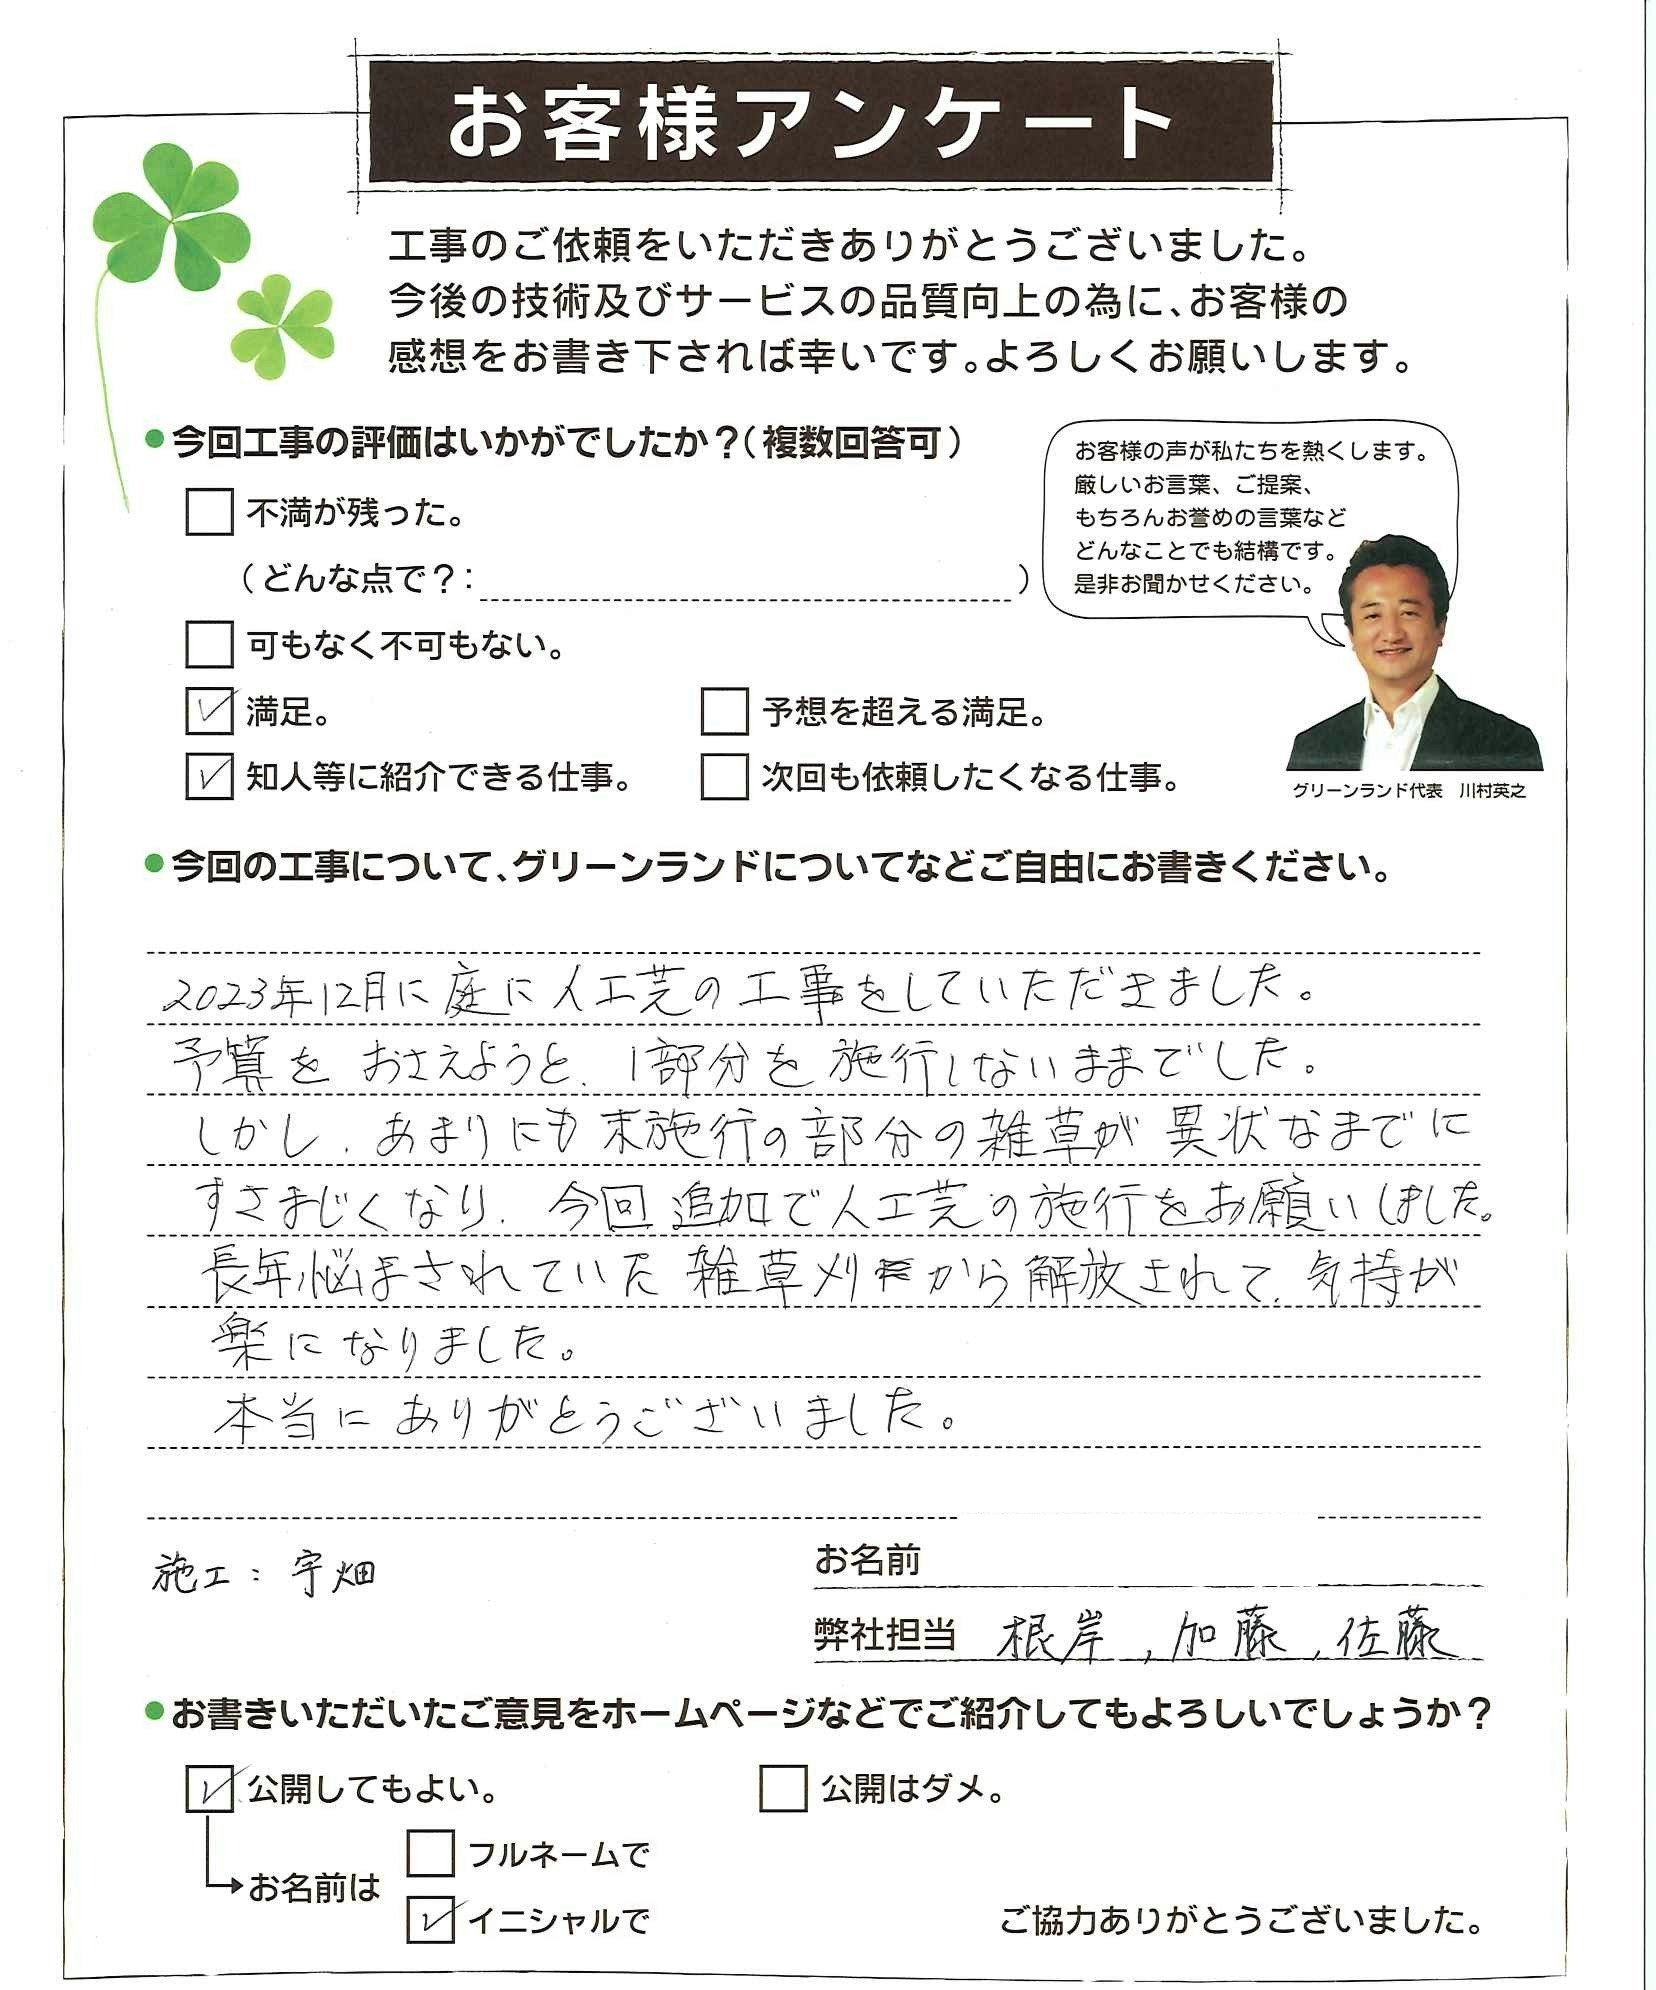 お客様アンケート
工事のご依頼をいただきありがとうございました。
今後の技術及びサービスの品質向上の為に、お客様の
感想をお書き下されば幸いです。よろしくお願いします。
●今回工事の評価はいかがでしたか？（複数回答可）
お客様の声が私たちを熱くします。
厳しいお言葉、ご提案、
もちろんお誉めの言葉など
どんなことでも結構です。
是非お聞かせください。
不満が残った。
（どんな点で？： ）
可もなく不可もない。
満足。
予想を超える満足。
知人等に紹介できる仕事。
次回も依頼したくなる仕事。
グリーンランド代表 川村英之
●今回の工事について、グリーンランドについてなどご自由にお書きください。
2023年12月に庭に人工芝の工事をしていただきました。
予算をおさえようと、1部分を施行しないままでした。
しかし、あまりにも未施行の部分の雑草が異状なまでに
すさまじくなり、今回追加で人工芝の施行をお願いしました。
長年悩まされていた雑草刈から解放されて、気持が
楽になりました。
本当にありがとうございました。
施工：宇畑
お名前
弊社担当 根岸、加藤、佐藤
●お書きいただいたご意見をホームページなどでご紹介してもよろしいでしょうか？
公開してもよい。
公開はダメ。
お名前は
フルネームで
イニシャルで
ご協力ありがとうございました。